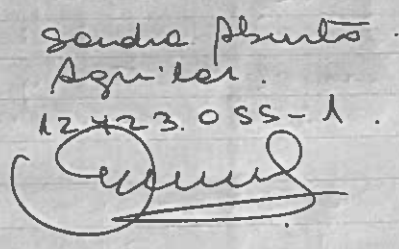 Sandra Aburto.
Aguilar.
12423.055-1.